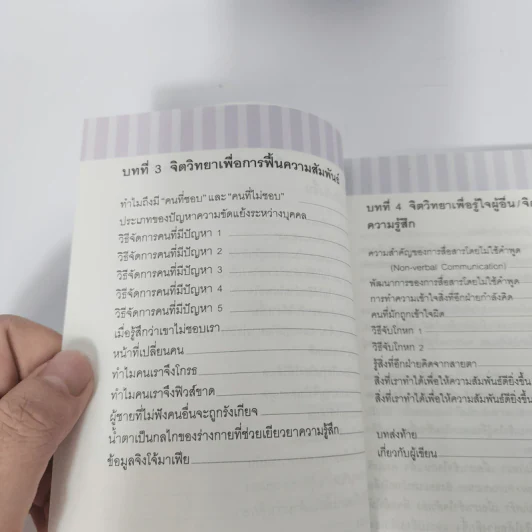 บทที่ 3 จิตวิทยาเพื่อการฟื้นความสัมพันธ์
ทำไมถึงมี "คนที่ชอบ" และ "คนที่ไม่ชอบ"
ประเภทของปัญหาความขัดแย้งระหว่างบุคคล
วิธีจัดการคนที่มีปัญหา 1
วิธีจัดการคนที่มีปัญหา 2
วิธีจัดการคนที่มีปัญหา 3
วิธีจัดการคนที่มีปัญหา 4
วิธีจัดการคนที่มีปัญหา 5
เมื่อรู้สึกว่าเขาไม่ชอบเรา
หน้าที่เปลี่ยนคน
ทำไมคนเราจึงโกรธ
ทำไมคนเราจึงฟิวส์ขาด
ผู้ชายที่ไม่ฟังคนอื่นจะถูกรังเกียจ
น้ำตาเป็นกลไกของร่างกายที่ช่วยเยียวยาความรู้สึก
ข้อมูลจิงโจ้มาเฟีย
บทที่ 4 จิตวิทยาเพื่อรู้ใจผู้อื่น/จิต
ความรู้สึก
ความสำคัญของการสื่อสารโดยไม่ใช้คำพูด
(Non-verbal Communication)
พัฒนาการของการสื่อสารโดยไม่ใช้คำพูด
การทำความเข้าใจสิ่งที่อีกฝ่ายกำลังคิด
คนที่มักถูกเข้าใจผิด
วิธีจับโกหก 1
วิธีจับโกหก 2
รู้สิ่งที่อีกฝ่ายคิดจากสายตา
สิ่งที่เราทำได้เพื่อให้ความสัมพันธ์ดียิ่งขึ้น
สิ่งที่เราทำได้เพื่อให้ความสัมพันธ์ดียิ่งขึ้น
บทส่งท้าย
เกี่ยวกับผู้เขียน